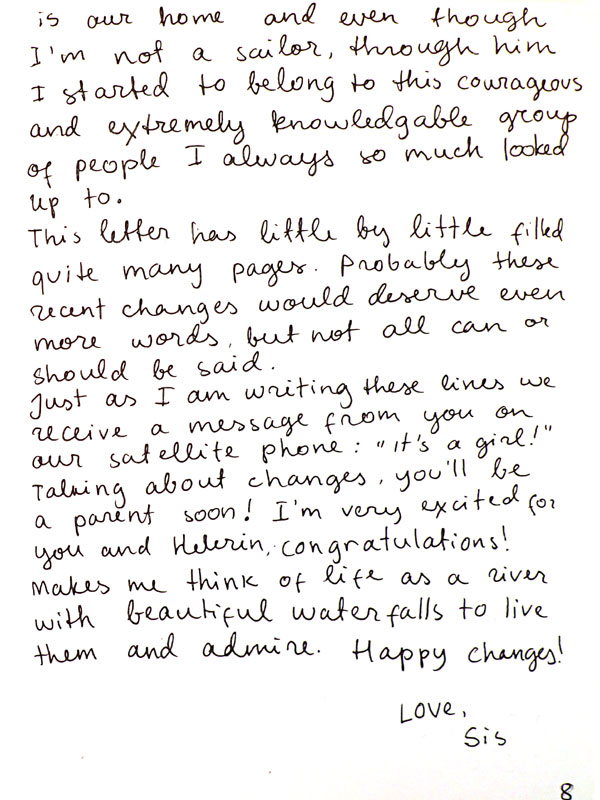 is our home and even though
I'm not a sailor, through him
I started to belong to this courageous
and extremely knowledgable group
of people I always so much looked
up to.
This letter has little by little filled
quite many pages. Probably these
recent changes would deserve even
more words, but not all can or
should be said.
Just as I am writing these lines we
receive a message from you on
our satellite phone: "It's a girl!"
Talking about changes, you'll be
a parent soon! I'm very excited for
you and Helerin, congratulations!
Makes me think of life as a river
with beautiful waterfalls to live
them and admire. Happy changes!
Love,
Sis
8